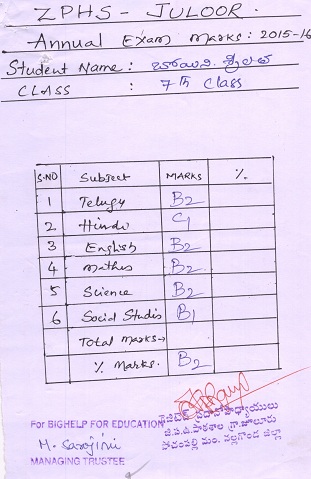 ZPHS - JULOOR.
Annual Exam Marks: 2015-16
Student Name :
CLASS : 7th Class
S.NO Subject MARKS %
1 Telugu B2
2 Hindi C1
3 English B2
4 Mathes B2
5 Science B2
6 Social Studis B1
Total marks→
% Marks. B2
For BIGHELP FOR EDUCATION
M. Sarojini
MANAGING TRUSTEE